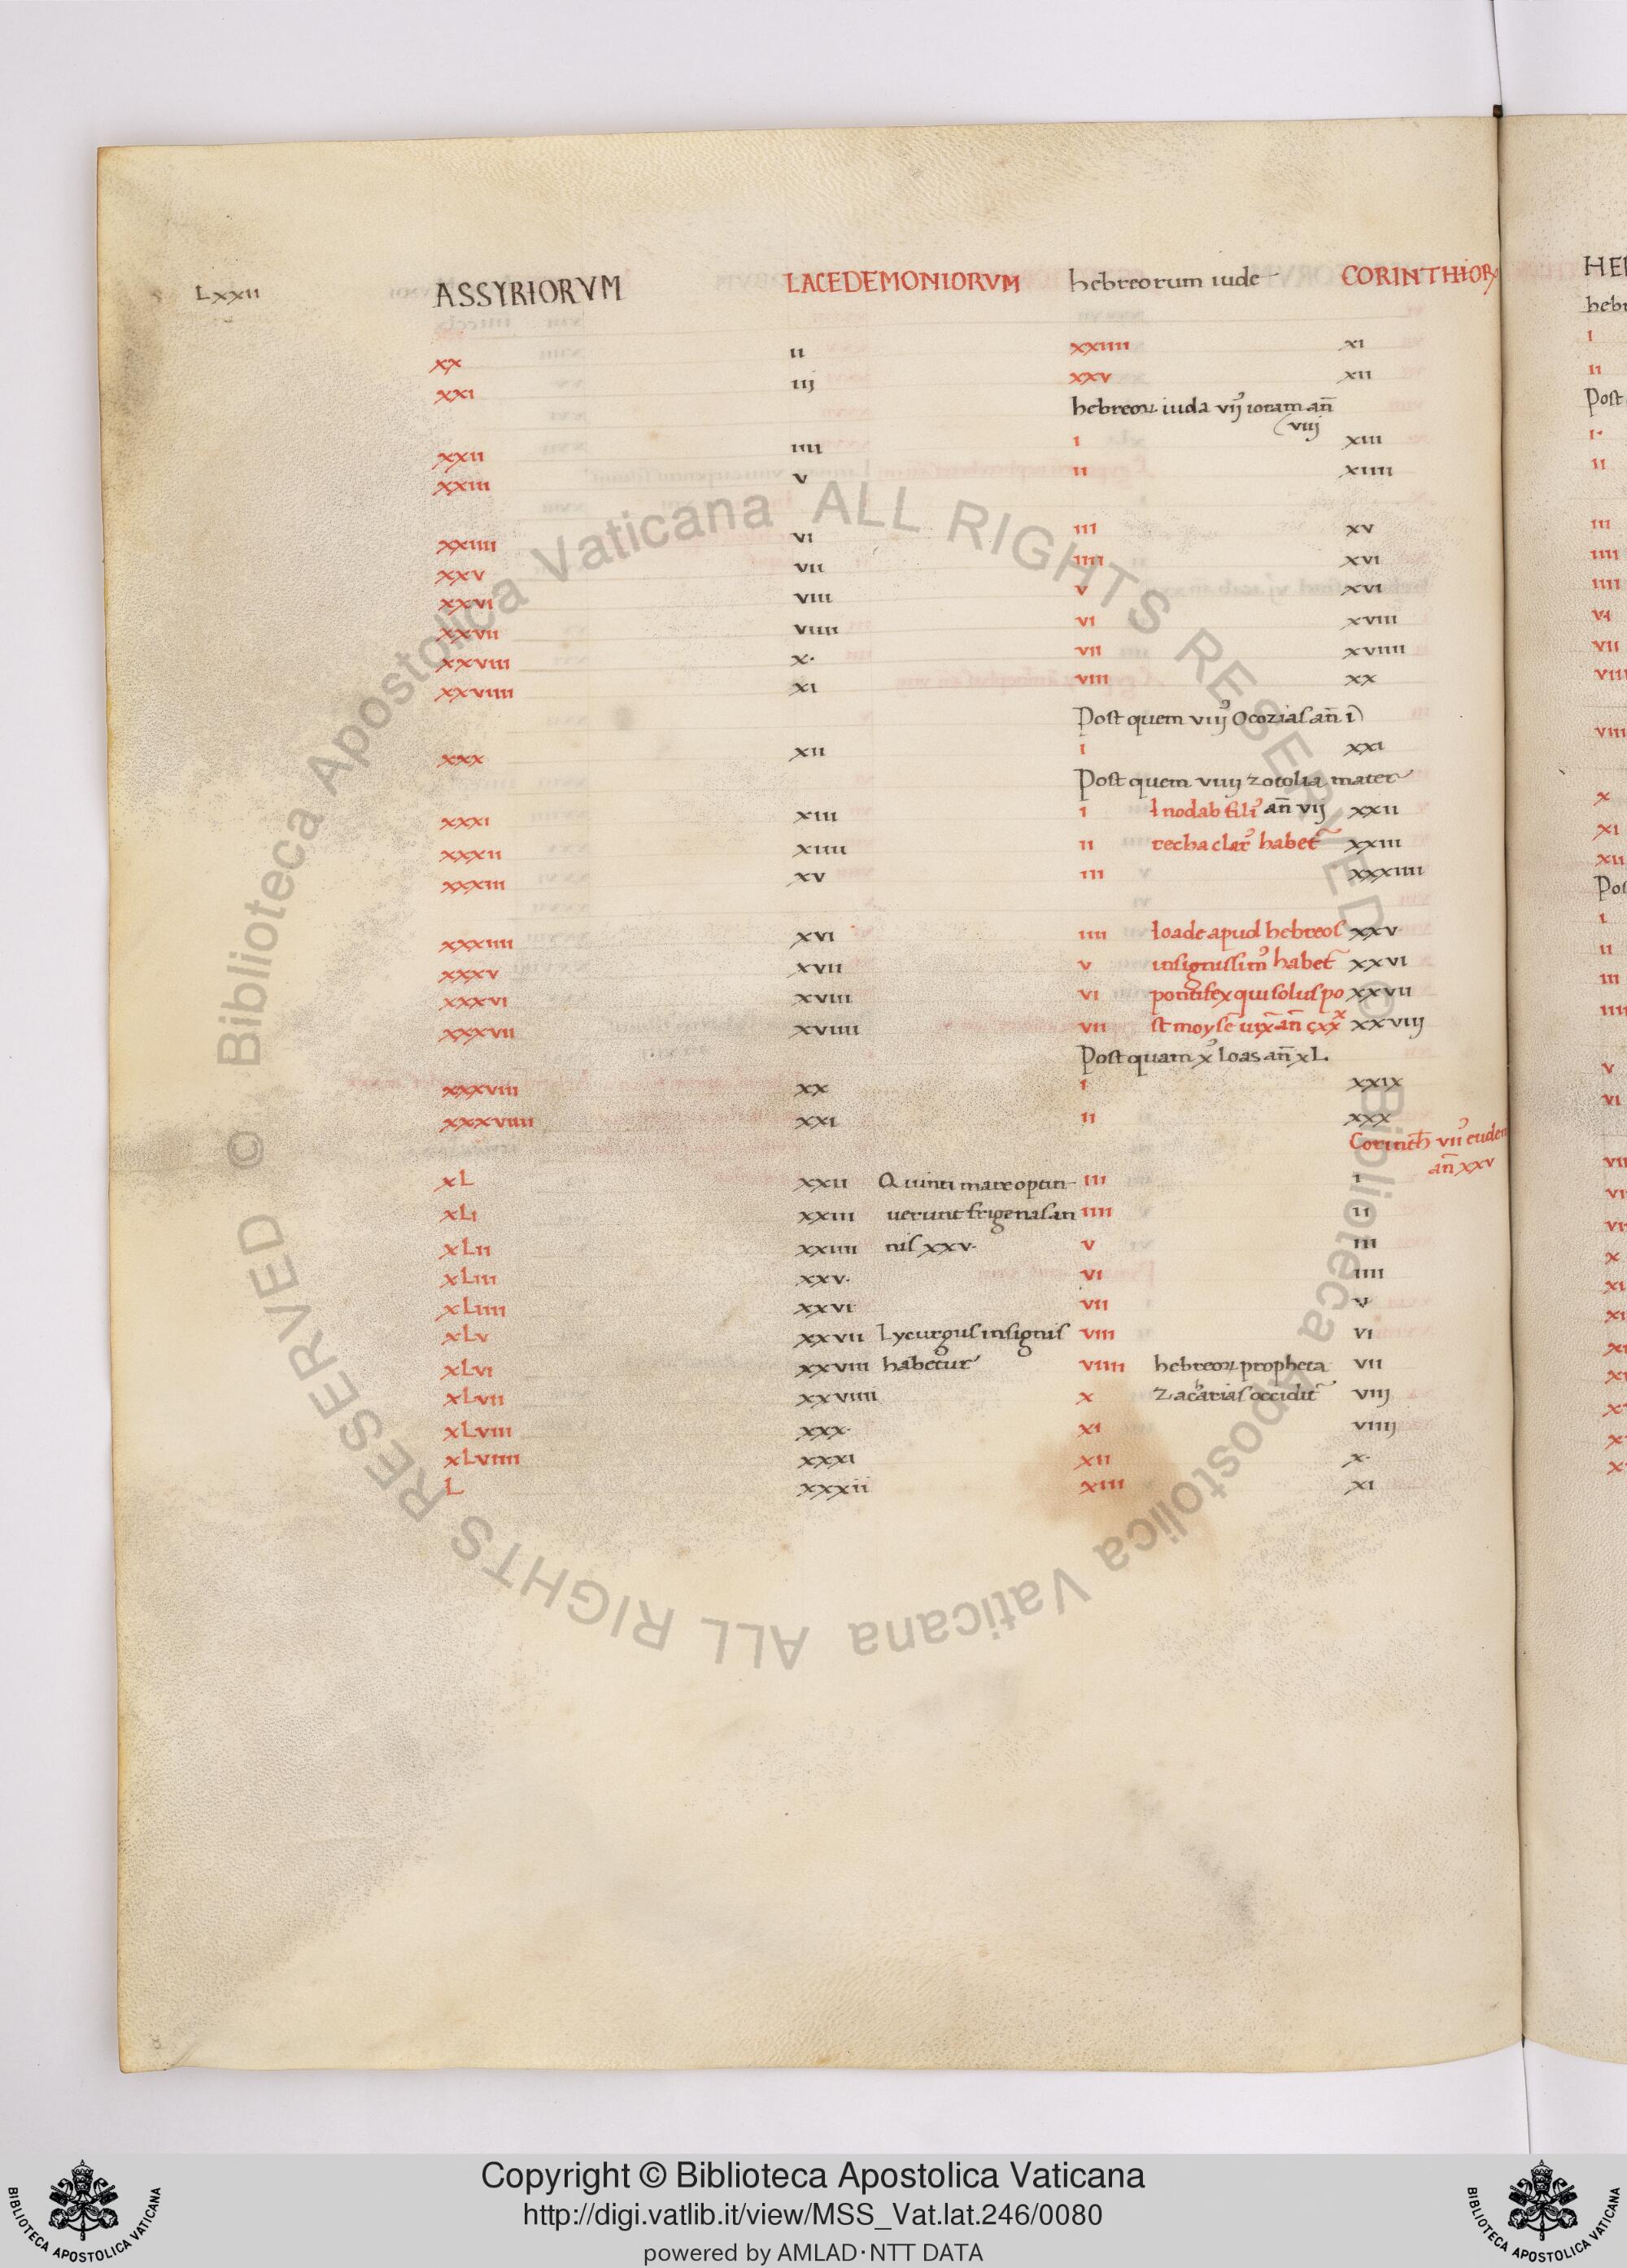 Lxxii ASSYRIORVM LACEDEMONIORVM hebreorum iude CORINTHIOR HE
hebr
xx ii xxiiii xi i
xxi iij xxv xii ii
hebreoꝝ iuda vij ioram an̄ Post
viij
xxii iiii i xiii i·
xxiii v ii xiiii ii
xxiiii vi iii xv iii
xxv vii iiii xvi iiii
xxvi viii v xvi iiii
xxvii viiii vi xviii vi
xxviii x· vii xviiii vii
xxviiii xi viii xx viii
Post quem viij Ocozias an̄ i
xxx xii i xxi viii
Post quem viiij zotolia mater
xxxi xiii i Inodab fili an̄ vij xxii x
xxxii xiiii ii recha clar habet xxiii xi
xxxiii xv iii xxxiiii xii
Pos
xxxiiii xvi iiii Ioade apud hebreos xxv i
xxxv xvii v insignissim habet xxvi ii
xxxvi xviii vi pontifex qui solus po xxvii iii
xxxvii xviiii vii st moyse uix an̄ cxx xxviij iiii
Post quam x Ioas an̄ xL.
xxxviii xx i xxix v
xxxviiii xxi ii xxx vi
Corinth vii eudem
an̄ xxv
xL xxii Quinti mare optin iii i vii
xLi xxiii uerunt frigenas an iiii ii
xLii xxiiii nis xxv· v iii
xLiii xxv· vi iiii x
xLiiii xxvi vii v
xLv xxvii Lycurgus insignis viii vi
xLvi xxviii habetur viiii hebreoꝝ propheta vii
xLvii xxviiii x Zacharias occidit viij
xLviii xxx· xi viiij
xLviiii xxxi xii x·
L xxxii xiii xi
© Biblioteca Apostolica Vaticana ALL RIGHTS RESERVED © Biblioteca Apostolica Vaticana ALL RIGHTS RESERVED
Copyright © Biblioteca Apostolica Vaticana
http://digi.vatlib.it/view/MSS_Vat.lat.246/0080
powered by AMLAD·NTT DATA
BIBLIOTECA APOSTOLICA VATICANA
BIBLIOTECA APOSTOLICA VATICANA